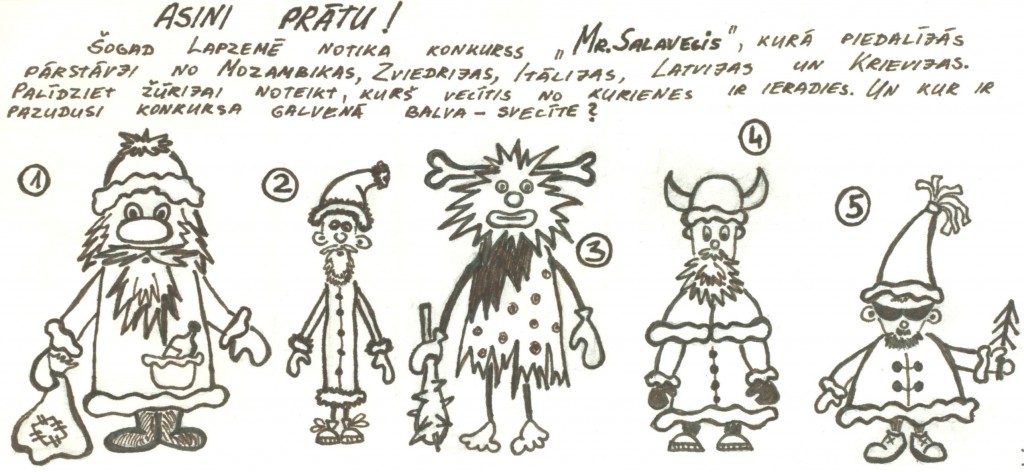 ASINI PRĀTU!
ŠOGAD LAPZEMĒ NOTIKA KONKURSS „MR. SALAVECIS”, KURĀ PIEDALĪJĀS
PĀRSTĀVJI NO MOZAMBIKAS, ZVIEDRIJAS, ITĀLIJAS, LATVIJAS UN KRIEVIJAS.
PALĪDZIET ŽŪRIJAI NOTEIKT, KURŠ VECĪTIS NO KURIENES IR IERADIES. UN KUR IR
PAZUDUSI KONKURSA GALVENĀ BALVA – SVECĪTE?
4
1
2
5
3